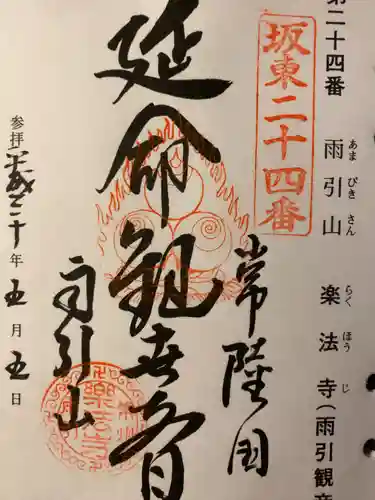 第二十四番 雨引山 楽法寺(雨引観音
あま びき さん らく ほう じ
坂東二十四番
常陸国
延命観世音
雨引山
参拝 平成二十年五月五日